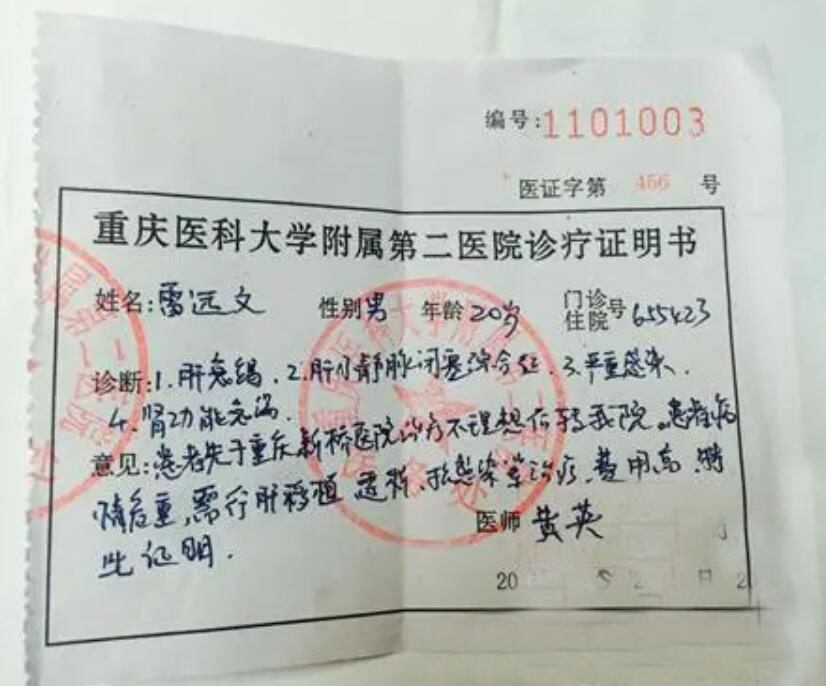 编号:1101003
医证字第 456 号
重庆医科大学附属第二医院诊疗证明书
姓名:雷远文 性别男 年龄20岁 门诊住院号655423
诊断:1.肝衰竭.2.肝小静脉闭塞综合征.3.严重感染.
4.肾功能衰竭.
意见:患者先于重庆新桥医院治疗不理想后转我院。患者病
情危重,需行肝移植 透析、抗感染等治疗,费用高,特
此证明.
医师 黄英
20 日 2